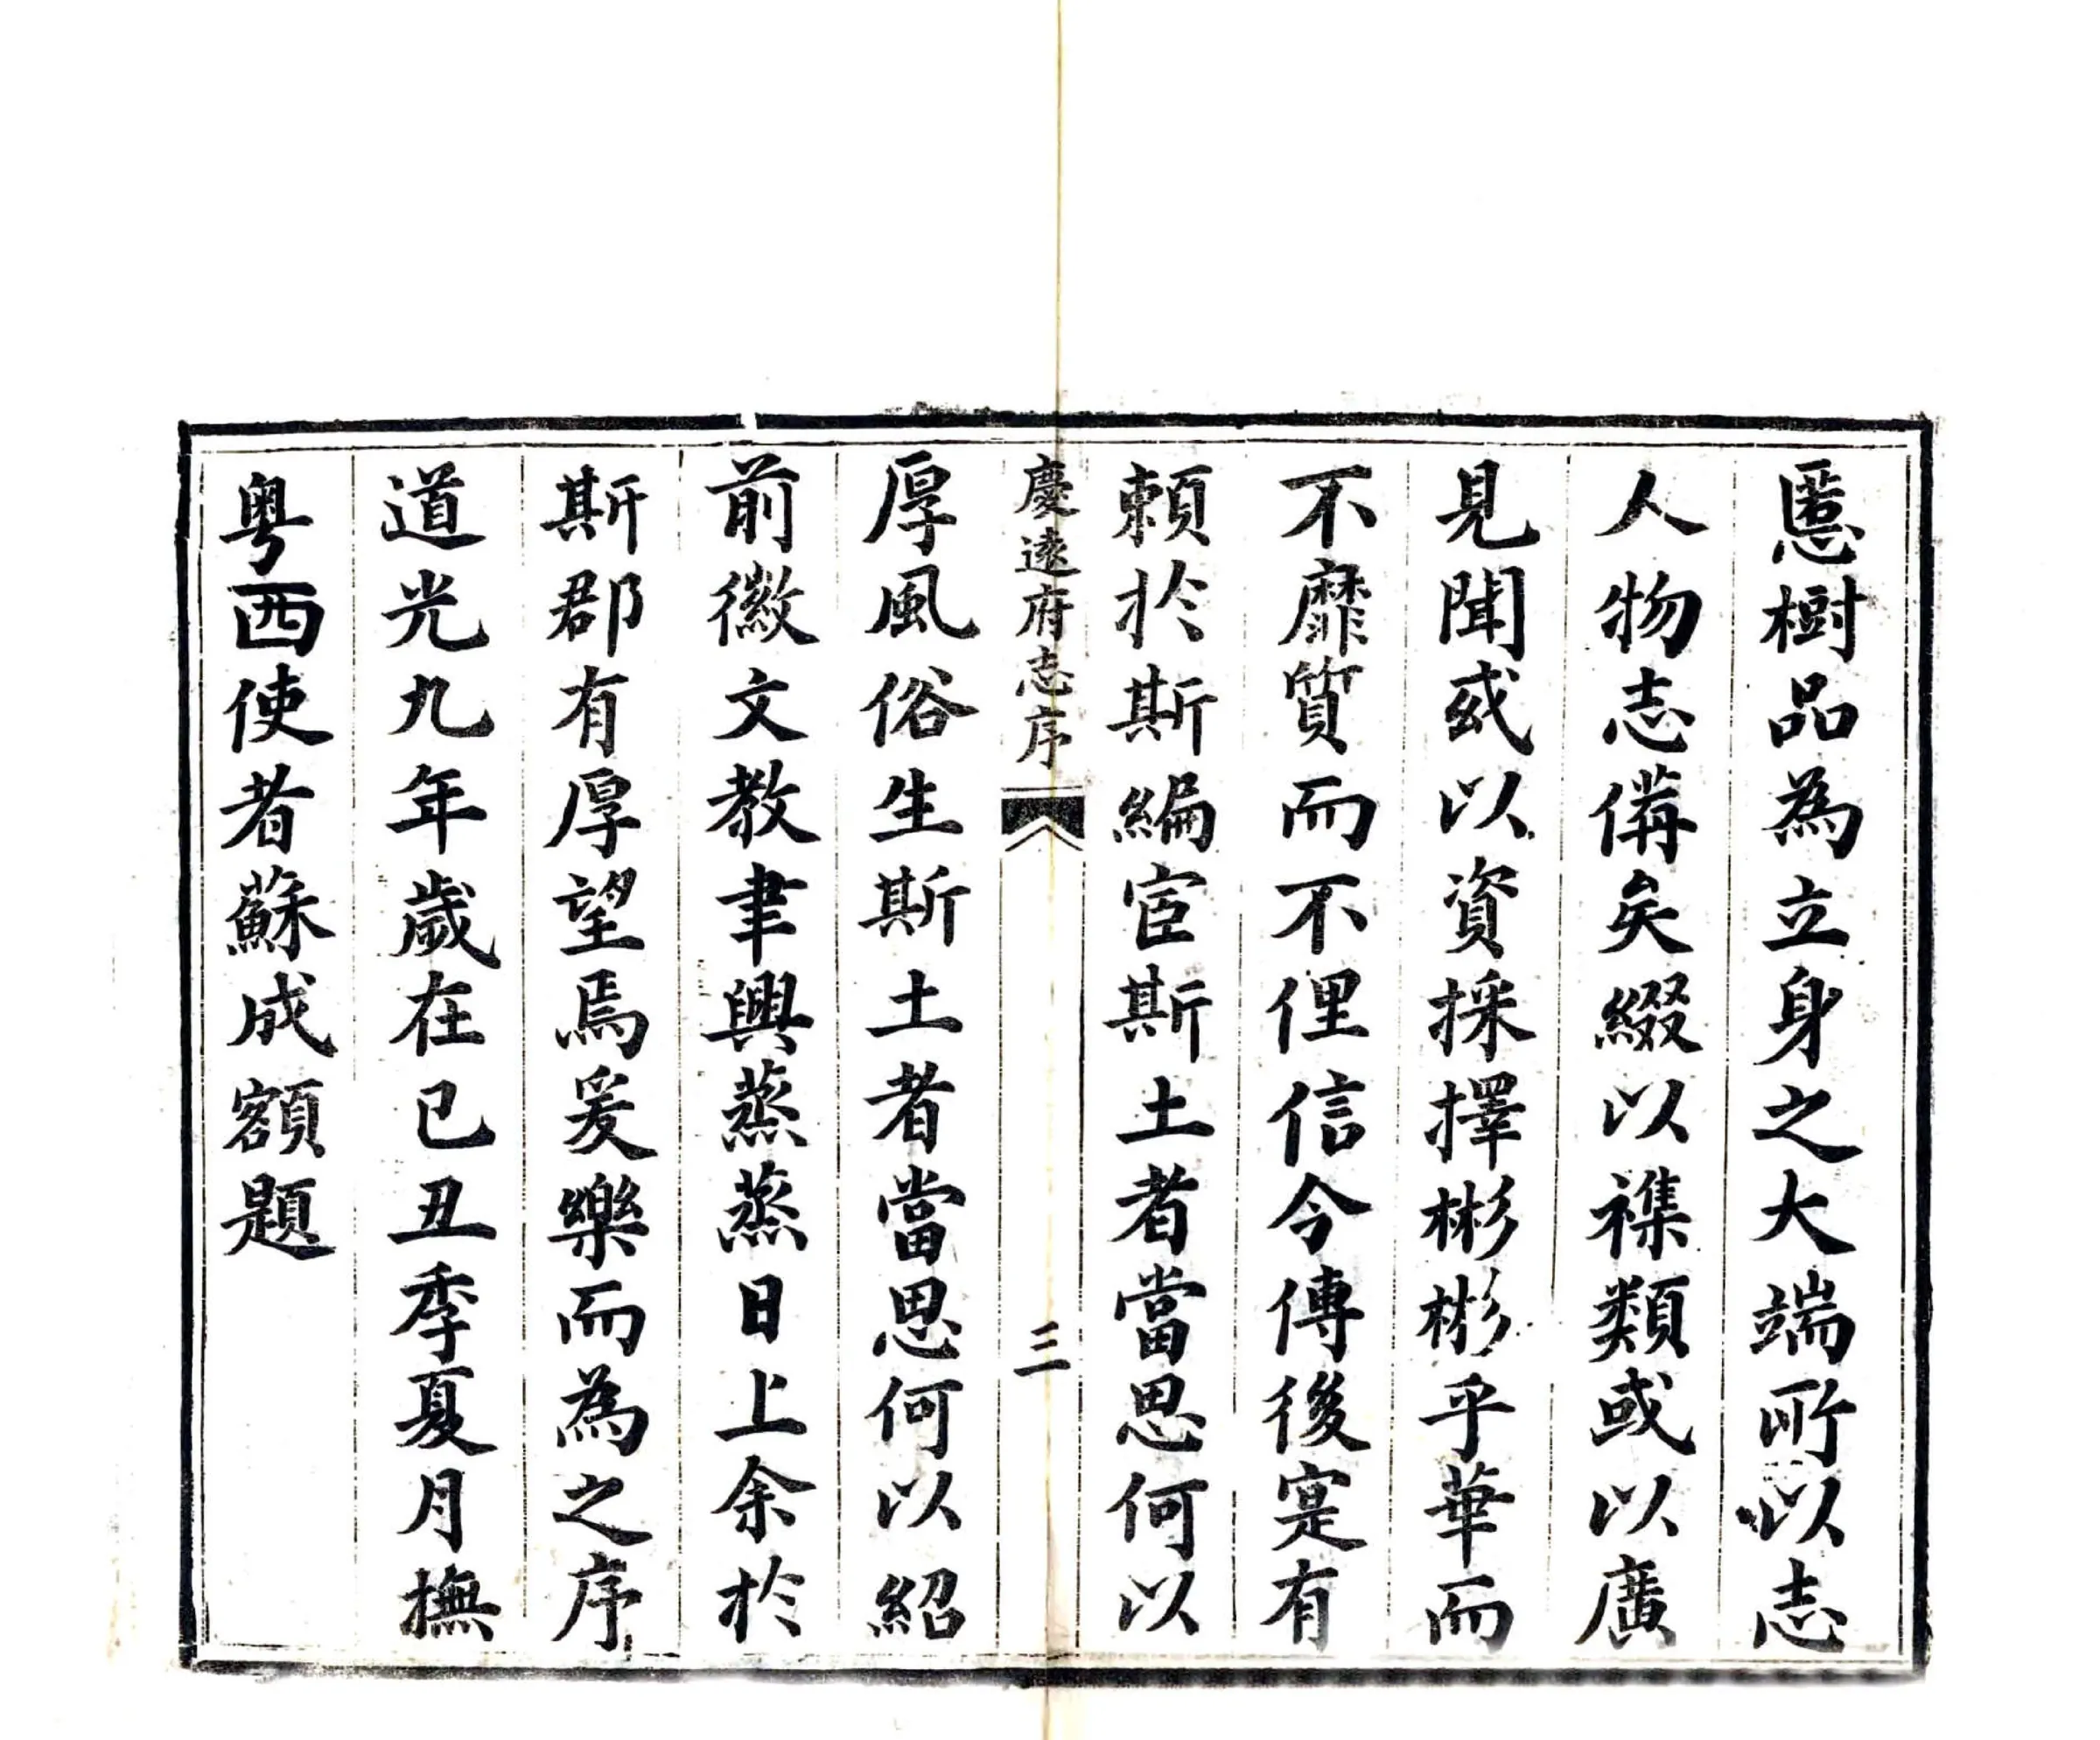 慝樹品為立身之大端所以志
人物志備矣綴以襍類或以廣
見聞或以資採擇彬彬乎華而
不靡質而不俚信今傳後寔有
賴於斯編宦斯土者當思何以
慶遠府志序
三
厚風俗生斯土者當思何以紹
前徽文教聿興蒸蒸日上余於
斯郡有厚望焉爰樂而為之序
道光九年歲在已丑季夏月撫
粤西使者蘇成額題